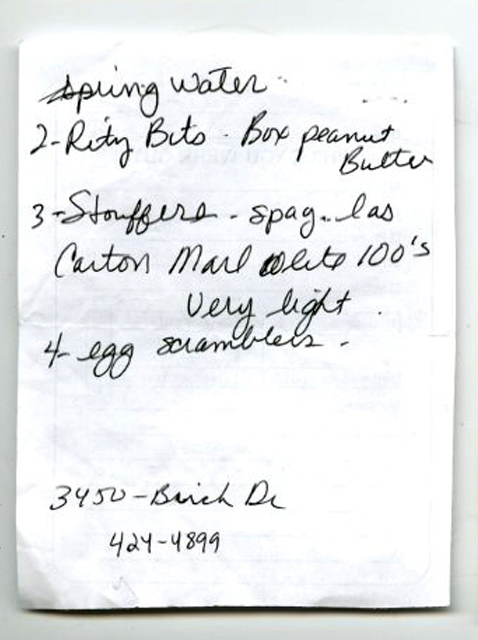 spring water
2-Ritz Bits - Box peanut
Butter
3-Stouffers - spag.. las
Carton Marl White 100's
Very light
4- egg scramblers -
3450-Birch Dr
424-4899